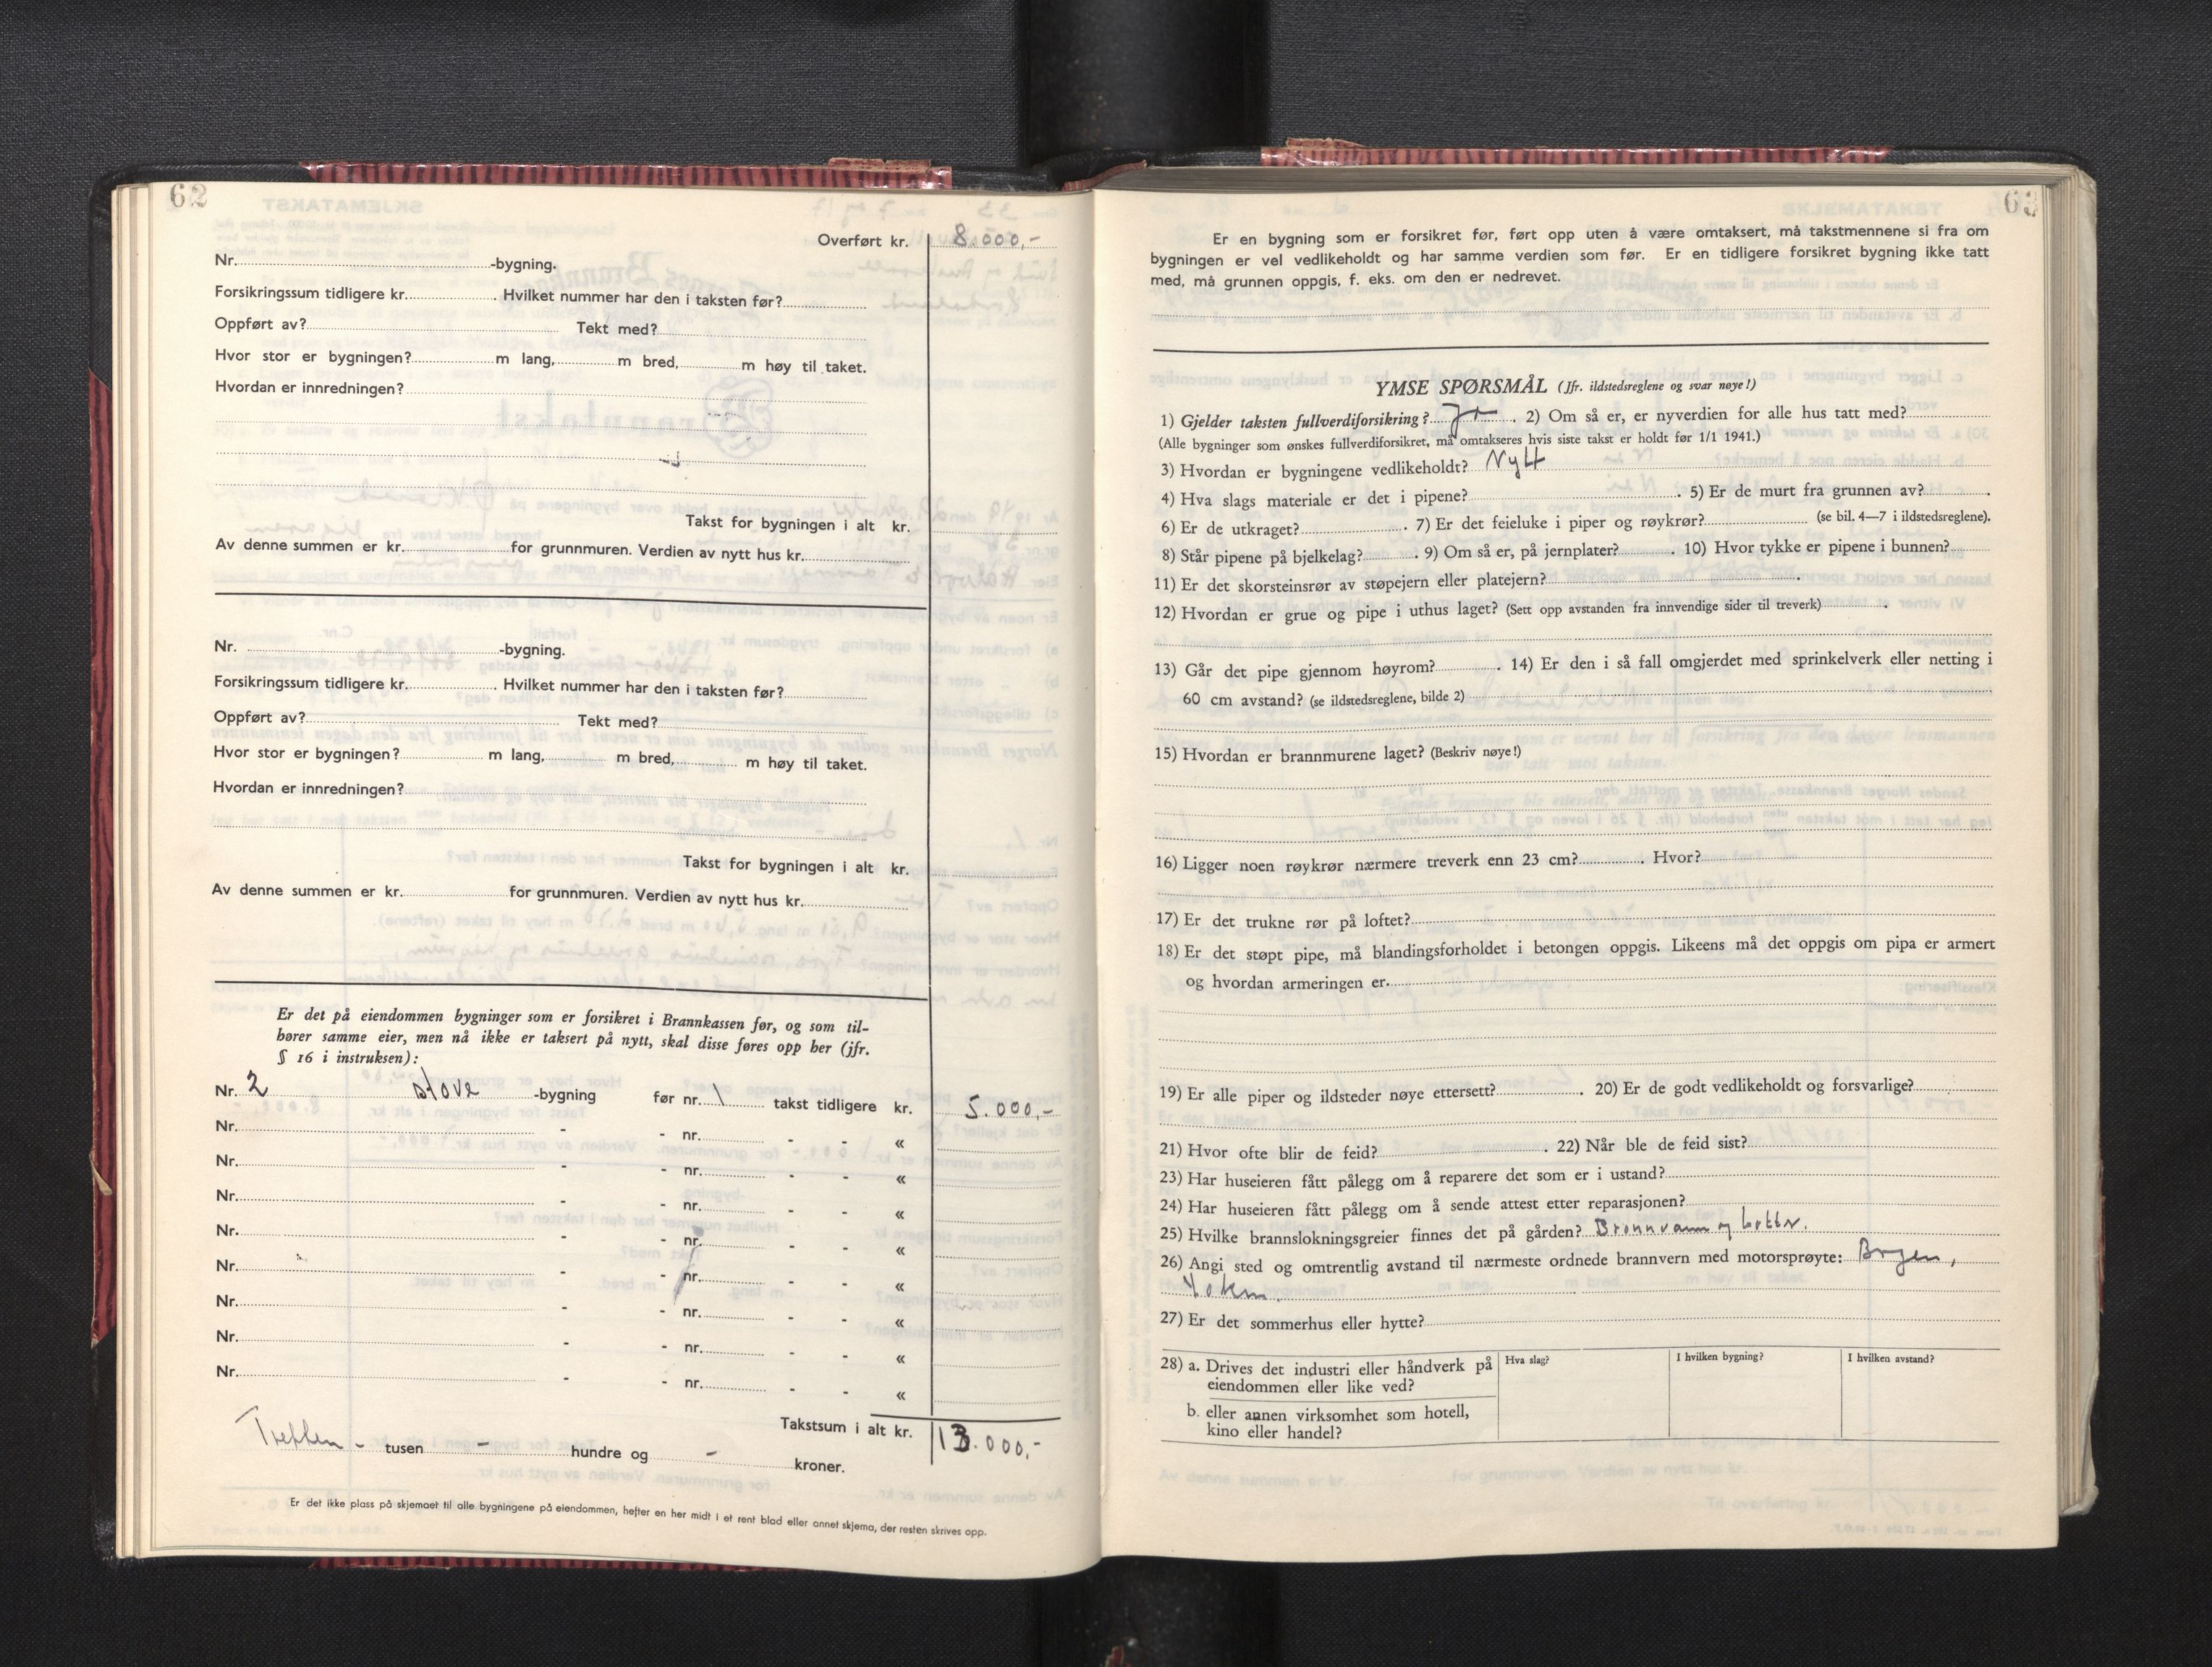 62
Overført kr. 8.000,-
Nr. -bygning.
Forsikringssum tidligere kr. . Hvilket nummer har den i taksten før?
Oppført av? Tekt med?
Hvor stor er bygningen? m lang, m bred, m høy til taket.
Hvordan er innredningen?
Takst for bygningen i alt kr.
Av denne summen er kr. for grunnmuren. Verdien av nytt hus kr.
Nr. -bygning.
Forsikringssum tidligere kr. . Hvilket nummer har den i taksten før?
Oppført av? Tekt med?
Hvor stor er bygningen? m lang, m bred, m høy til taket.
Hvordan er innredningen?
Takst for bygningen i alt kr.
Av denne summen er kr. for grunnmuren. Verdien av nytt hus kr.
Er det på eiendommen bygninger som er forsikret i Brannkassen før, og som til-
hører samme eier, men nå ikke er taksert på nytt, skal disse føres opp her (jfr.
§ 16 i instruksen):
Nr. 2 stove -bygning før nr. 1 takst tidligere kr. 5.000,-
Nr. - - nr. - - «
Nr. - - nr. - - «
Nr. - - nr. - - «
Nr. - - nr. - - «
Nr. - - nr. - - «
Nr. - - nr. - - «
Nr. - - nr. - - «
Nr. - - nr. - - «
Takstsum i alt kr. 13.000,-
Tretten - tusen - hundre og - kroner.
Er det ikke plass på skjemaet til alle bygningene på eiendommen, hefter en her midt i et rent blad eller annet skjema, der resten skrives opp.
63
Er en bygning som er forsikret før, ført opp uten å være omtaksert, må takstmennene si fra om
bygningen er vel vedlikeholdt og har samme verdien som før. Er en tidligere forsikret bygning ikke tatt
med, må grunnen oppgis, f. eks. om den er nedrevet.
YMSE SPØRSMÅL (Jfr. ildstedsreglene og svar nøye!)
1) Gjelder taksten fullverdiforsikring? Ja . 2) Om så er, er nyverdien for alle hus tatt med?
(Alle bygninger som ønskes fullverdiforsikret, må omtakseres hvis siste takst er holdt før 1/1 1941.)
3) Hvordan er bygningene vedlikeholdt? Nytt
4) Hva slags materiale er det i pipene? . 5) Er de murt fra grunnen av? .
6) Er de utkraget? . 7) Er det feieluke i piper og røykrør? (se bil. 4—7 i ildstedsreglene).
8) Står pipene på bjelkelag? . 9) Om så er, på jernplater? . 10) Hvor tykke er pipene i bunnen?
11) Er det skorsteinsrør av støpejern eller platejern? .
12) Hvordan er grue og pipe i uthus laget? (Sett opp avstanden fra innvendige sider til treverk) .
13) Går det pipe gjennom høyrom? . 14) Er den i så fall omgjerdet med sprinkelverk eller netting i
60 cm avstand? (se ildstedsreglene, bilde 2)
15) Hvordan er brannmurene laget? (Beskriv nøye!)
16) Ligger noen røykrør nærmere treverk enn 23 cm? . Hvor?
17) Er det trukne rør på loftet?
18) Er det støpt pipe, må blandingsforholdet i betongen oppgis. Likeens må det oppgis om pipa er armert
og hvordan armeringen er.
19) Er alle piper og ildsteder nøye ettersett? . 20) Er de godt vedlikeholdt og forsvarlige?
21) Hvor ofte blir de feid? . 22) Når ble de feid sist?
23) Har huseieren fått pålegg om å reparere det som er i ustand?
24) Har huseieren fått pålegg om å sende attest etter reparasjonen?
25) Hvilke brannslokningsgreier finnes det på gården? Brønnvann og bøtter.
26) Angi sted og omtrentlig avstand til nærmeste ordnede brannvern med motorsprøyte: Bergen,
40 km.
27) Er det sommerhus eller hytte?
28) a. Drives det industri eller håndverk på
eiendommen eller like ved?
Hva slag? I hvilken bygning? I hvilken avstand?
b. eller annen virksomhet som hotell,
kino eller handel?